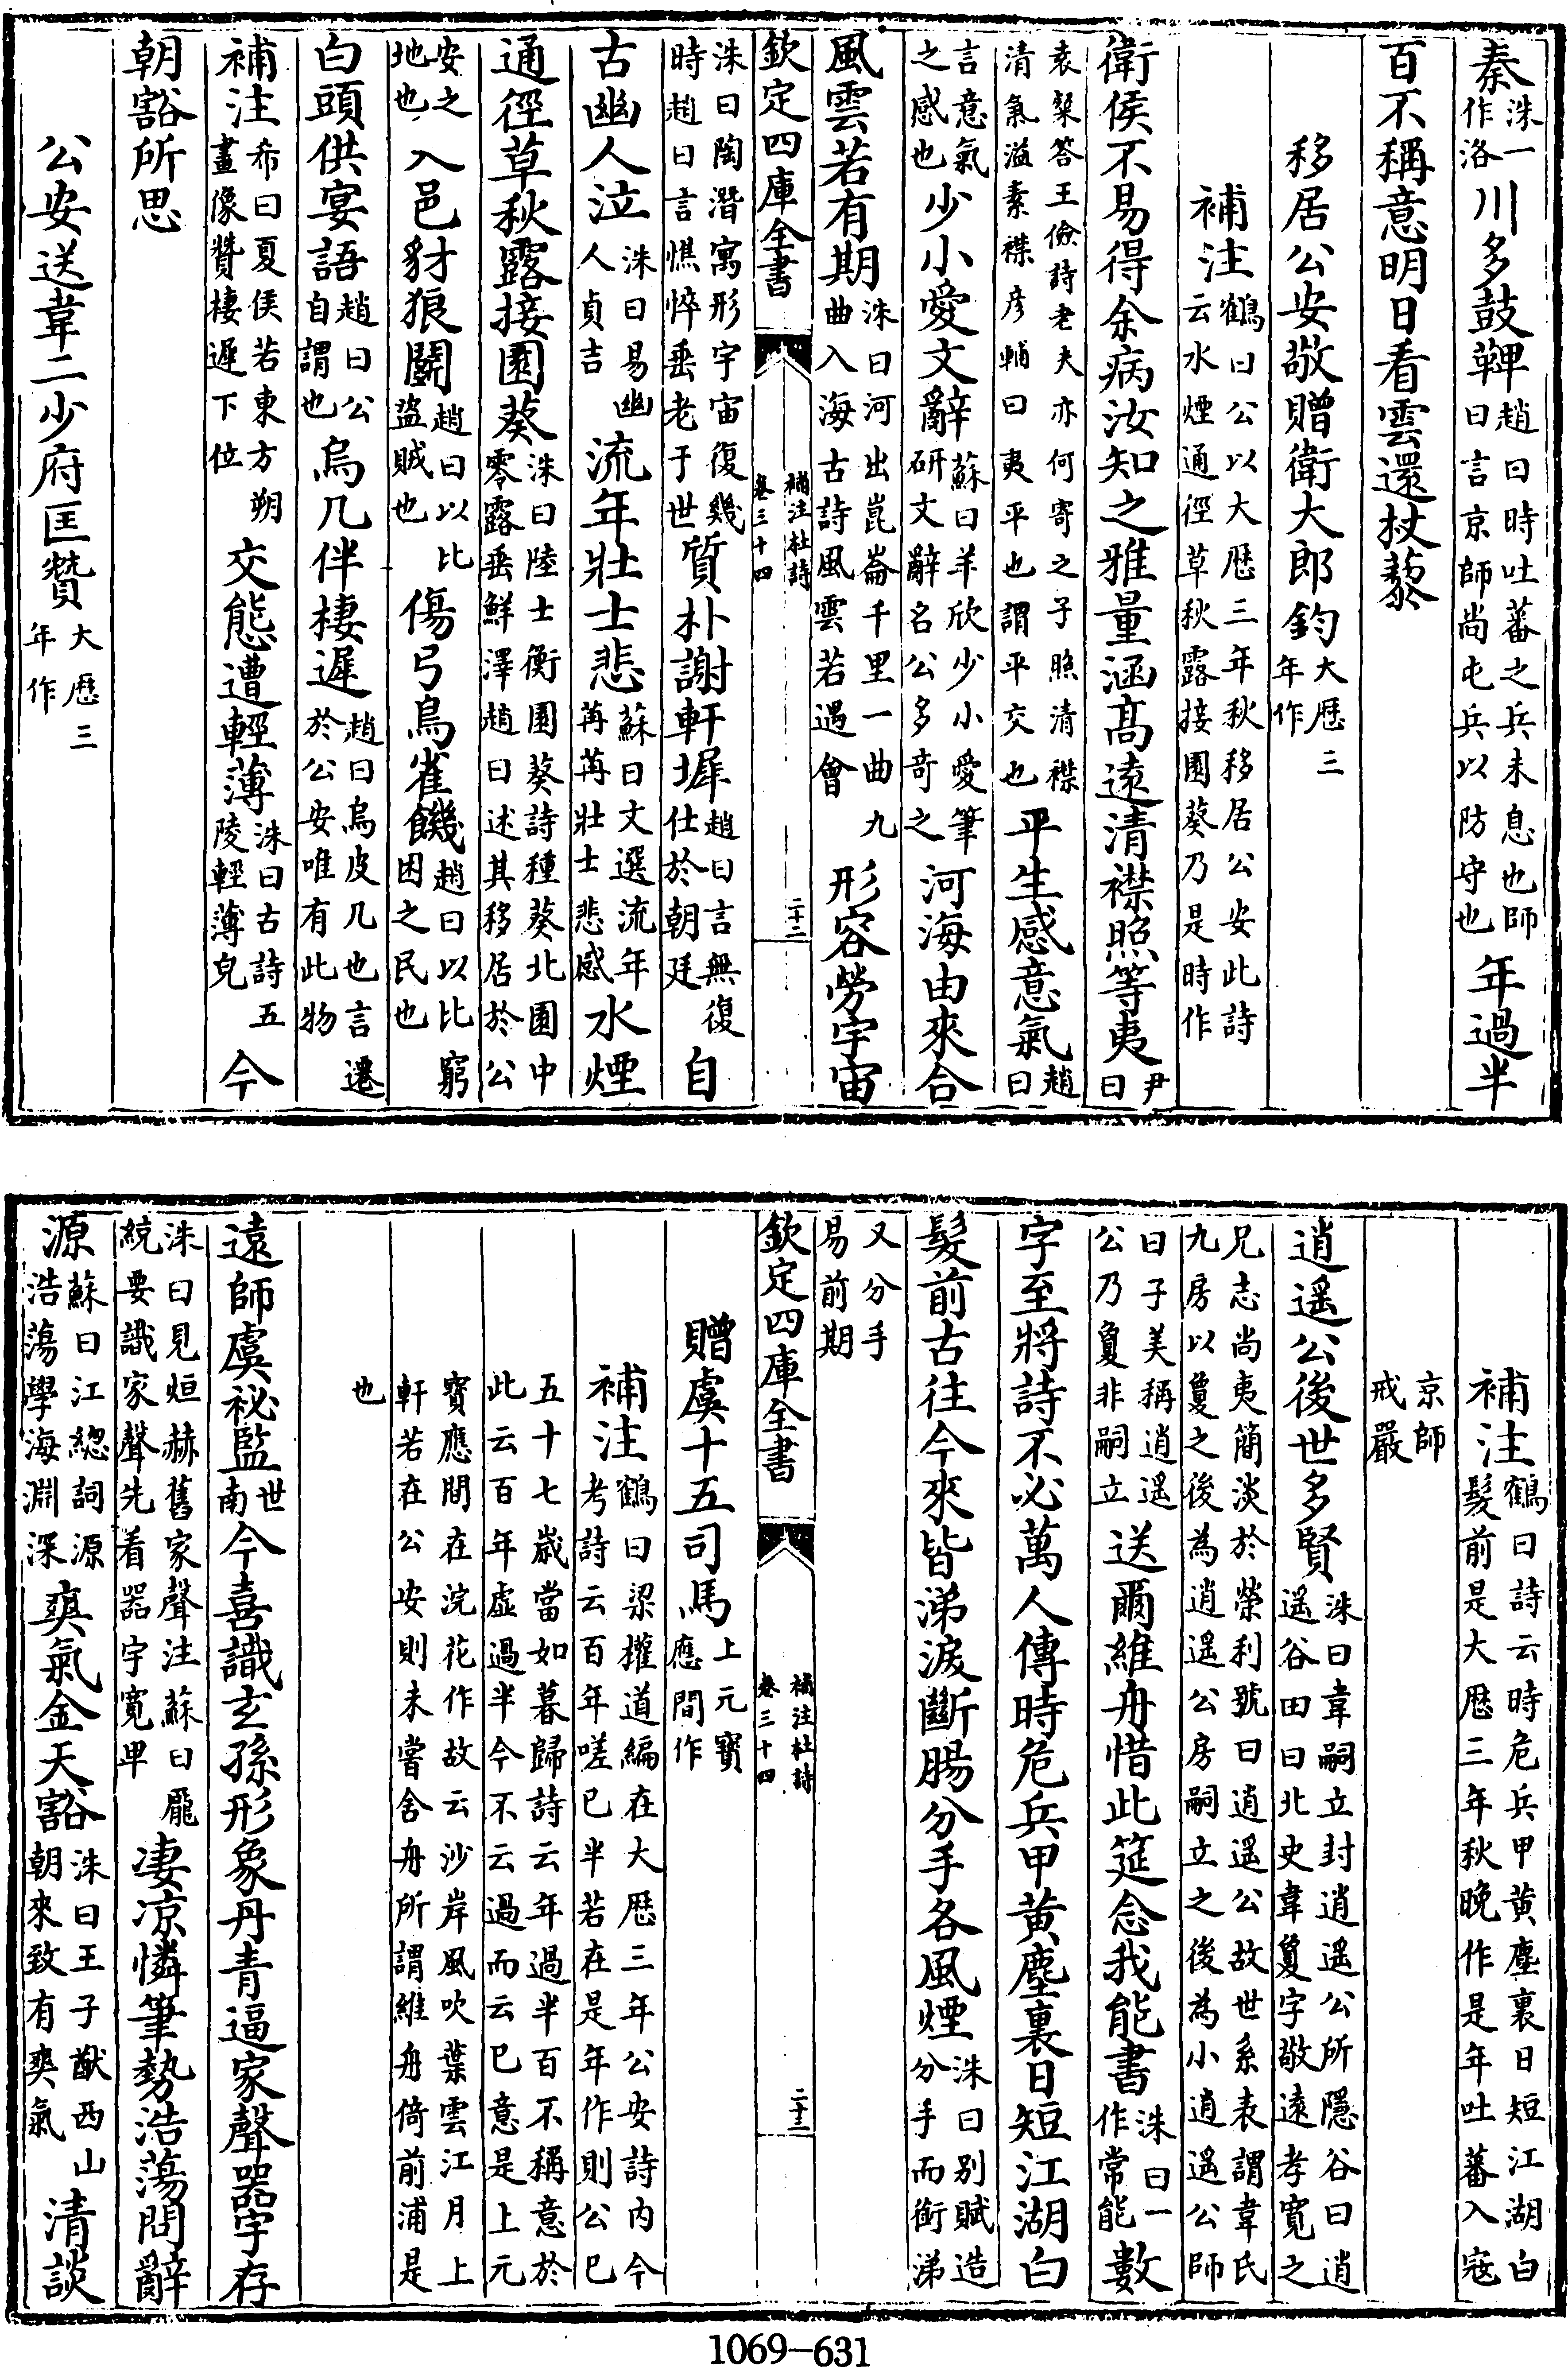 秦洙一作洛川多鼓鞞趙曰時吐蕃之兵未息也師曰言京師尚屯兵以防守也年過半
百不稱意明日看雲還杖藜
移居公安敬贈衛大郎鈞大厯三年作
補注鶴曰公以大厯三年秋移居公安此詩云水煙通徑草秋露接園葵乃是時作
衛侯不易得余病汝知之雅量涵髙逺清襟照等夷尹曰
袁粲答王儉詩老夫亦何寄之子照清襟清氣溢素襟彦輔曰夷平也謂平交也平生感意氣趙曰
言意氣之感也少小愛文辭蘇曰羊欣少小愛筆研文辭名公多竒之河海由來合
風雲若有期洙曰河出崑崙千里一曲九曲入海古詩風雲若遇會形容勞宇宙
欽定四庫全書 補注杜詩卷三十四 二十二
洙曰陶潛寓形宇宙復幾時趙曰言憔悴垂老于世質朴謝軒墀趙曰言無復仕於朝廷自
古幽人泣洙曰易幽人貞吉流年壯士悲蘇曰文選流年苒苒壯士悲感水煙
通徑草秋露接園葵洙曰陸士衡園葵詩種葵北園中零露垂鮮澤趙曰述其移居於公
安之地也入邑豺狼鬭趙曰以比盜賊也傷弓鳥雀饑趙曰以比窮困之民也
白頭供宴語趙曰公自謂也烏几伴棲遲趙曰烏皮几也言遷於公安唯有此物
補注希曰夏侯若東方朔畫像贊棲遲下位交態遭輕薄洙曰古詩五陵輕薄兒今
朝豁所思
公安送韋二少府匡贊大厯三年作
補注鶴曰詩云時危兵甲黄塵裏日短江湖白髮前是大厯三年秋晚作是年吐蕃入寇
京師戒嚴
逍遥公後世多賢洙曰韋嗣立封逍遥公所隱谷曰逍遥谷田曰北史韋夐字敬逺孝寛之
兄志尚夷簡淡於榮利號曰逍遥公故世系表謂韋氏九房以夐之後為逍遥公房嗣立之後為小逍遥公師
曰子美稱逍遥公乃夐非嗣立送爾維舟惜此筵念我能書洙曰一作常能數
字至將詩不必萬人傳時危兵甲黄塵裏日短江湖白
髮前古往今來皆涕淚斷腸分手各風煙洙曰别賦造分手而銜涕
又分手易前期
欽定四庫全書 補注杜詩卷三十四 二十三
贈虞十五司馬上元寶應間作
補注鶴曰梁權道編在大厯三年公安詩内今考詩云百年嗟已半若在是年作則公已
五十七歳當如暮歸詩云年過半百不稱意於此云百年虚過半今不云過而云已意是上元
寶應間在浣花作故云沙岸風吹葉雲江月上軒若在公安則未嘗舍舟所謂維舟倚前浦是
也
逺師虞祕監世南今喜識玄孫形象丹青逼家聲器宇存
洙曰見烜赫舊家聲注蘇曰龎統要識家聲先看器宇寛甲凄凉憐筆勢浩蕩問辭
源蘇曰江緫詞源浩蕩學海淵深爽氣金天豁洙曰王子猷西山朝來致有爽氣清談
1069-631